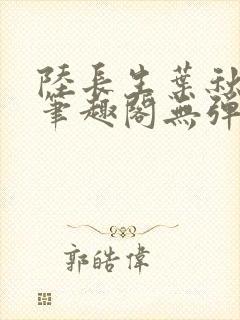 陸長生葉秋
筆趣閣無彈
郭皓偉